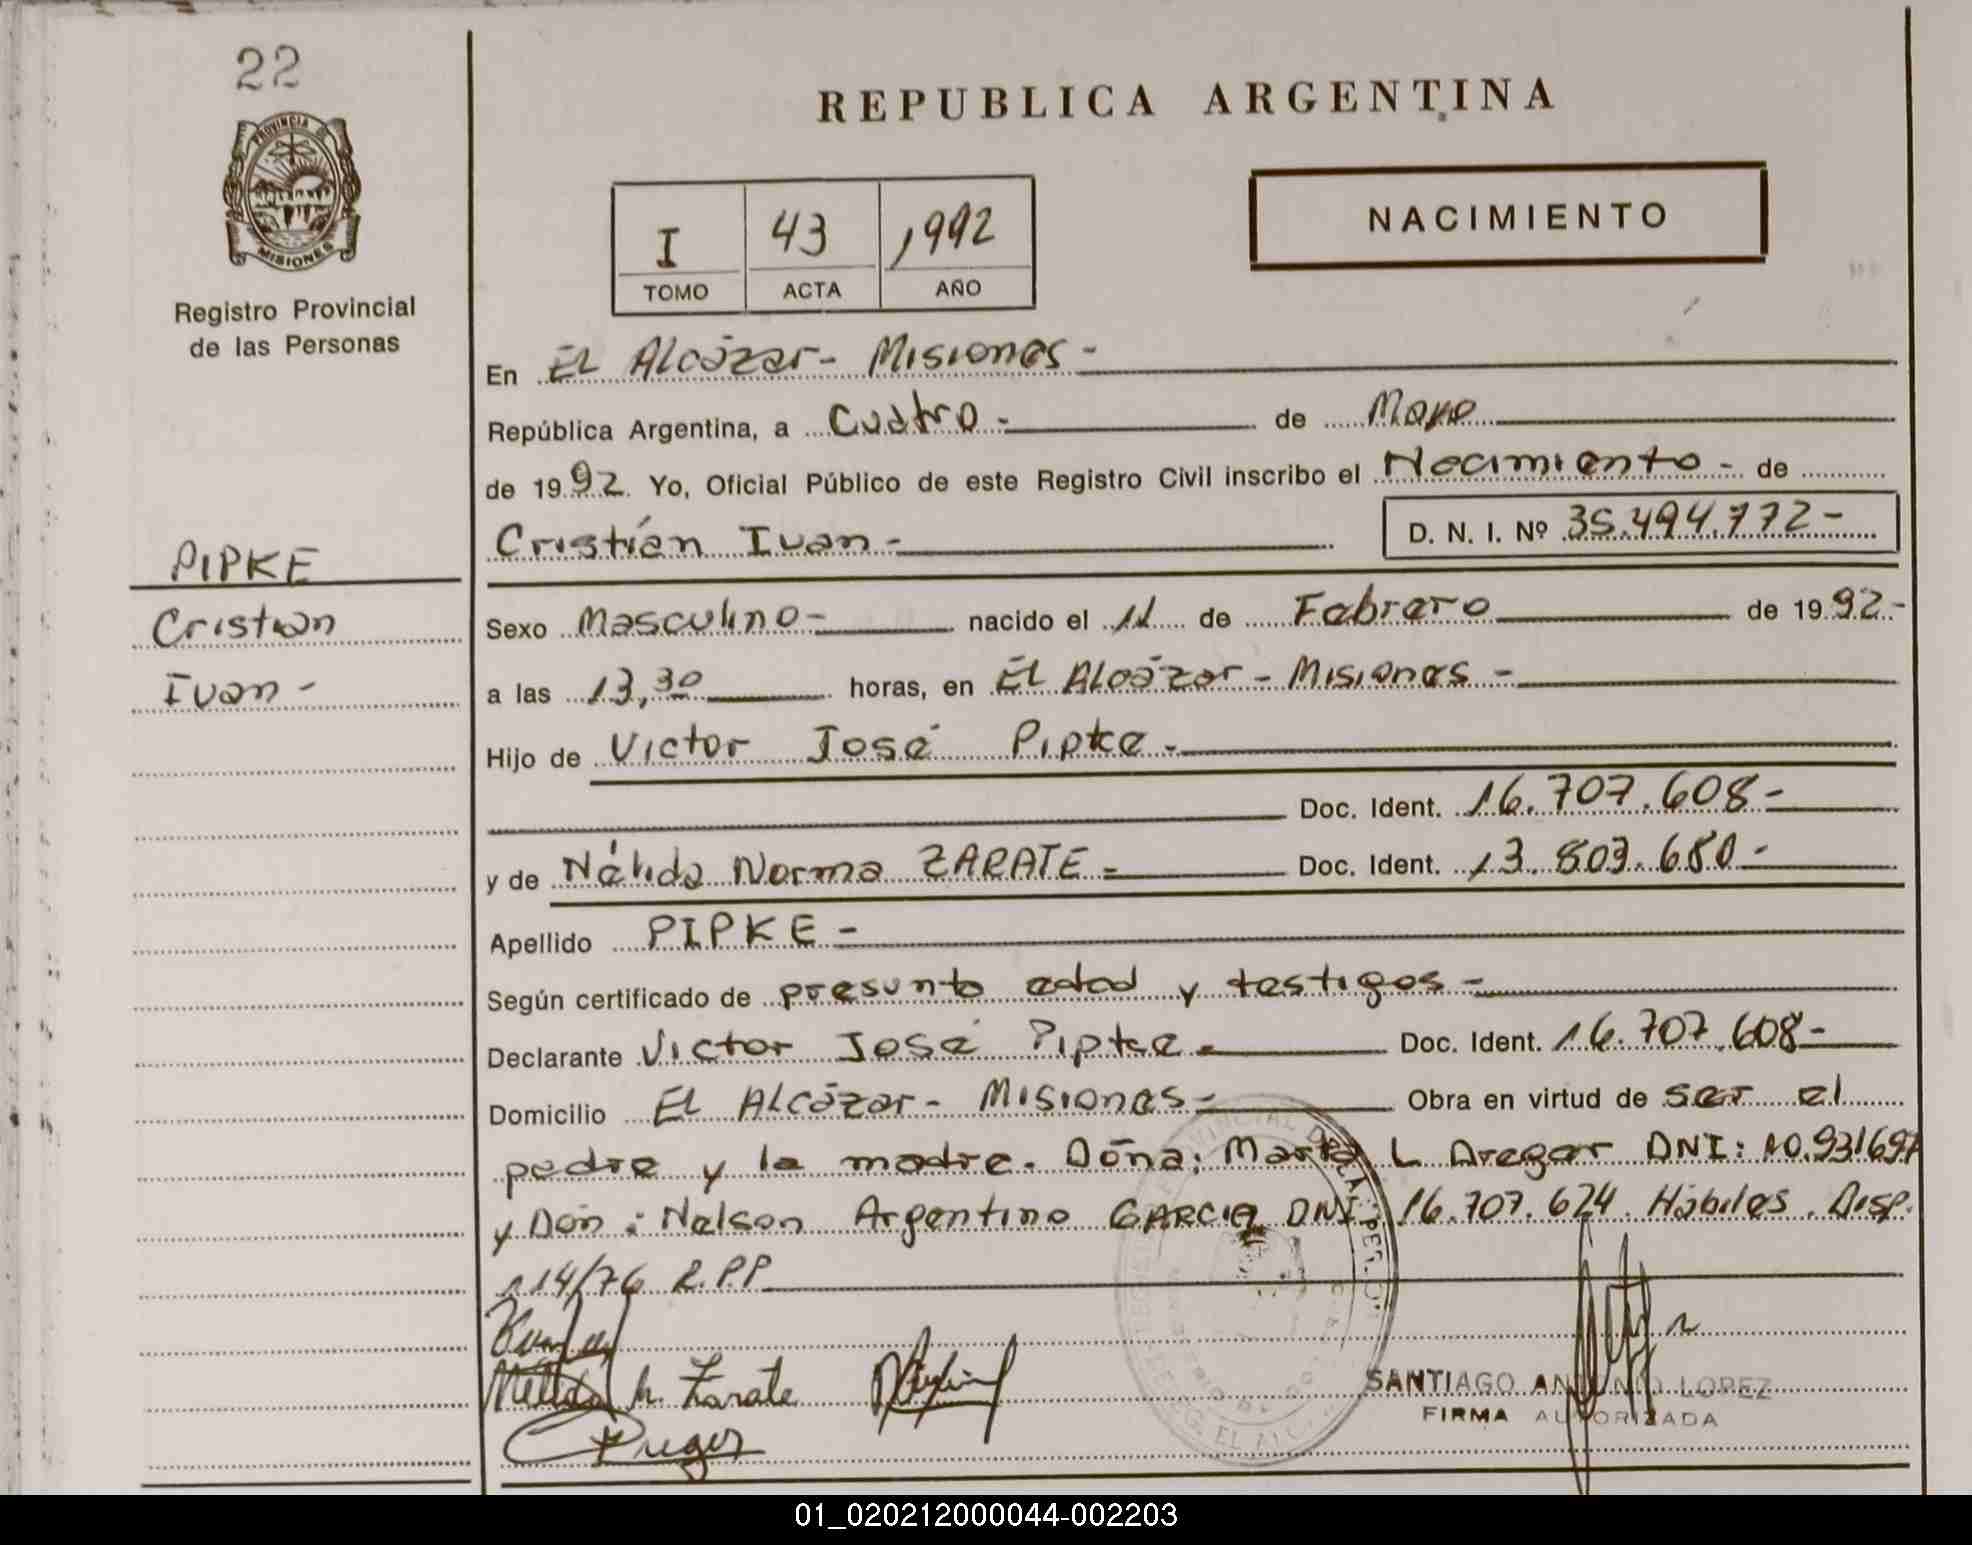 22
PROVINCIA DE
MISIONES
Registro Provincial
de las Personas
REPUBLICA ARGENTINA
I 43 1992
TOMO ACTA AÑO
NACIMIENTO
En El Alcázar - Misiones -
República Argentina, a Cuatro - de Mayo
de 1992. Yo, Oficial Público de este Registro Civil inscribo el Nacimiento - de
Cristián Ivan - D. N. I. Nº 35.494.772 -
PIPKE
Cristian
Ivan -
Sexo Masculino - nacido el 11 de Febrero de 1992 -
a las 13,30 horas, en El Alcázar - Misiones -
Hijo de Victor José Pipke -
Doc. Ident. 16.707.608 -
y de Nélida Norma ZARATE - Doc. Ident. 13.803.680 -
Apellido PIPKE -
Según certificado de presunta edad y testigos -
Declarante Victor José Pipke - Doc. Ident. 16.707.608 -
Domicilio El Alcázar - Misiones - Obra en virtud de ser el
padre y la madre. Doña: Marta L Aregar DNI: 10.931697
y Don: Nelson Argentino GARCIA DNI 16.707.624 Hábiles. Disp.
114/76 R.P.P
N. Zarate
SANTIAGO ANTONIO LOPEZ
FIRMA AUTORIZADA
01_020212000044-002203